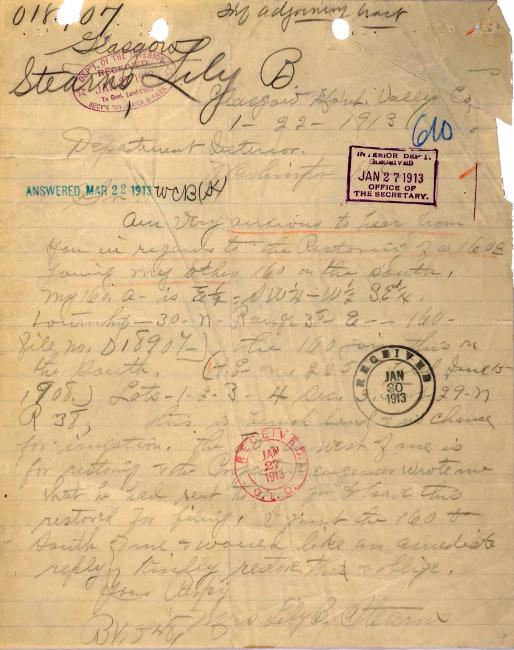 018907
Inf adjoining tract
Glasgow
Stearns, Lily B
DEPT. OF THE INTERIOR
RECEIVED
JAN
To Genl. Land Office
SECY'S OFF. MAILS & FILES.
Glasgow Mont. Valley Co
1-22-1913
610
Department Interior.
Washington
INTERIOR DEPT.
RECEIVED
JAN 27 1913
OFFICE OF
THE SECRETARY.
ANSWERED MAR 22 1913 WCB
Am Very anxious to hear from
you in regards to the Restoring of a 160 a
joining my other 160 on the south.
My 160 a- is E½- SW¼- W½ SE¼.
Township-30-N- Range 38- E-- 160-
file no. 018907-) the 160 join this on
the South. June 15-
1908.) Lots-1-2-3-4 29-N
R 38, this is bench land & no chance
for irrigation. The west of me is
for restoring & the wrote me
that he had sent to have this
restored for filing. I joint the 160 to
South of me & would like an imediate
reply. Kindly restore this & oblige.
Your Respy
Mrs Lily B. Stearns
BX. 548
RECEIVED
JAN
30
1913
RECEIVED
JAN
27
1913
G.L.O.